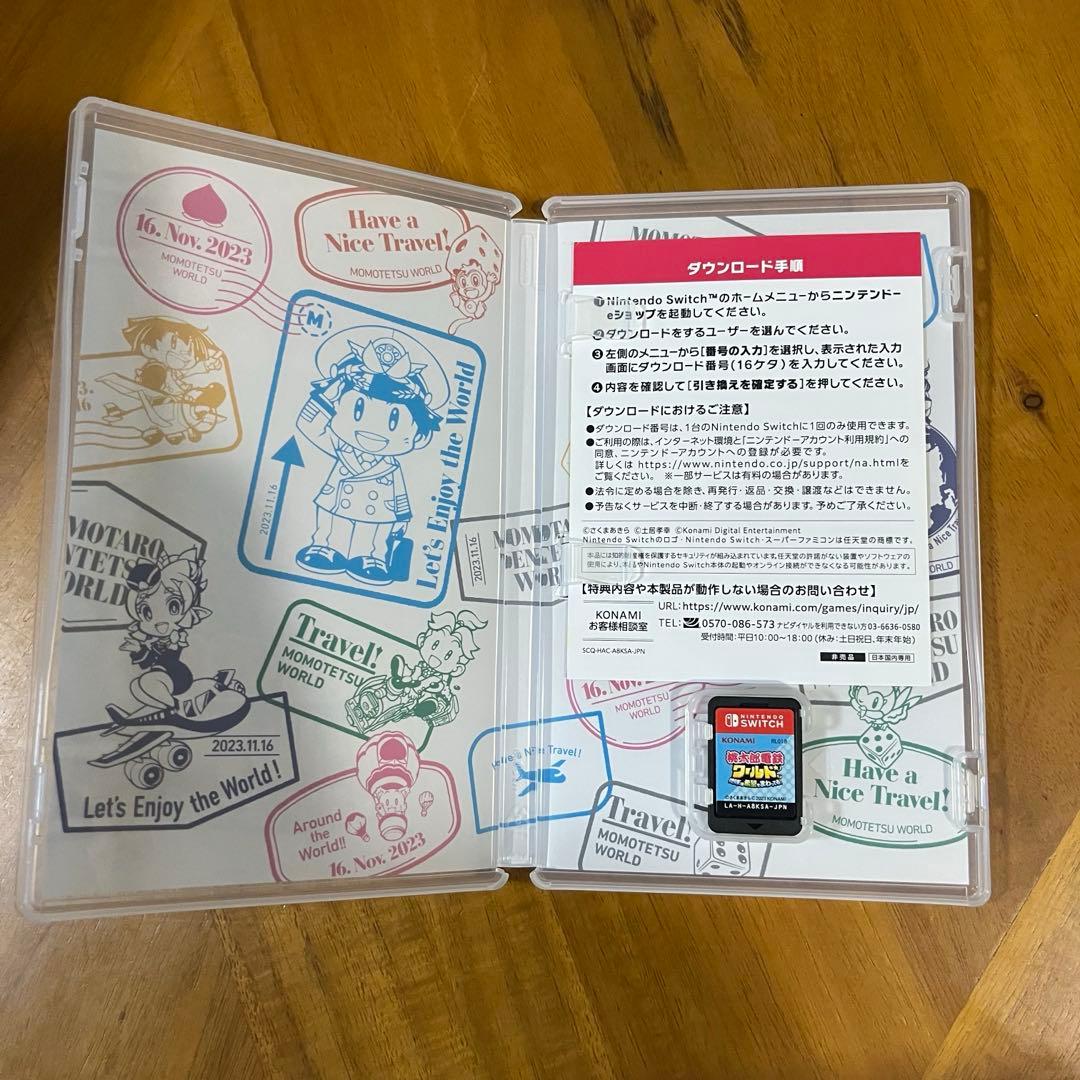 16. Nov. 2023
MOMOTETSU
WORLD
Have a
Nice Travel!
MOMOTETSU WORLD
M
Let's Enjoy the World
2023.11.16
MOTARO
NTETS
WORLD
2023.11.16
Let's Enjoy the World!
Travel!
MOMOTETSU
WORLD
Around
the
World!!
16. Nov. 2023
2023.11.16
ダウンロード手順
❶Nintendo Switch™のホームメニューからニンテンドー
eショップを起動してください。
❷ダウンロードをするユーザーを選んでください。
❸左側のメニューから[番号の入力]を選択し、表示された入力
画面にダウンロード番号(16ケタ)を入力してください。
❹内容を確認して[引き換えを確定する]を押してください。
【ダウンロードにおけるご注意】
●ダウンロード番号は、1台のNintendo Switchに1回のみ使用できます。
●ご利用の際は、インターネット環境と「ニンテンドーアカウント利用規約」への
同意、ニンテンドーアカウントへの登録が必要です。
詳しくは https://www.nintendo.co.jp/support/na.htmlを
ご覧ください。 ※一部サービスは有料の場合があります。
●法令に定める場合を除き、再発行・返品・交換・譲渡などはできません。
●予告なくサービスを中断・終了する場合があります。予めご了承ください。
©さくまあきら ©土居孝幸 ©Konami Digital Entertainment
Nintendo Switchのロゴ・Nintendo Switch・スーパーファミコンは任天堂の商標です。
本品には知的財産権を保護するセキュリティが組み込まれています。任天堂の許諾がない装置やソフトウェアの
使用により、本品やNintendo Switch本体の起動やオンライン接続ができなくなる可能性があります。
【特典内容や本製品が動作しない場合のお問い合わせ】
KONAMI
お客様相談室
URL:https://www.konami.com/games/inquiry/jp/
TEL:0570-086-573 ナビダイヤルを利用できない方03-6636-0580
受付時間:平日10:00~18:00(休み:土日祝日、年末年始)
SCQ-HAC-A8KSA-JPN
非売品
日本国内専用
16. Nov.
MOMOTETSU
WORLD
NINTENDO
SWITCH
KONAMI
RL018
桃太郎電鉄
ワールド
©さくまあきら ©2023 KONAMI
LA-H-A8KSA-JPN
Have a
Nice Travel!
MOMOTETSU WORLD
Travel!
MOMOTETSU
WORLD